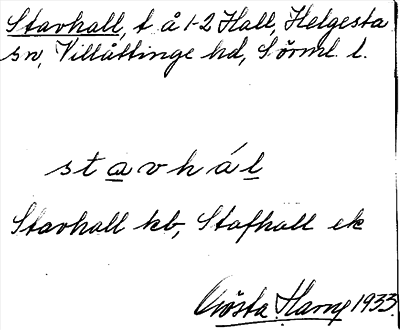 Stavhall, t å 1-2 Hall, Helgesta
sn, Villåttinge hd, Sörml. l.
stavhál
Stavhall kb, Stafhall ek
Gösta Harne 1933